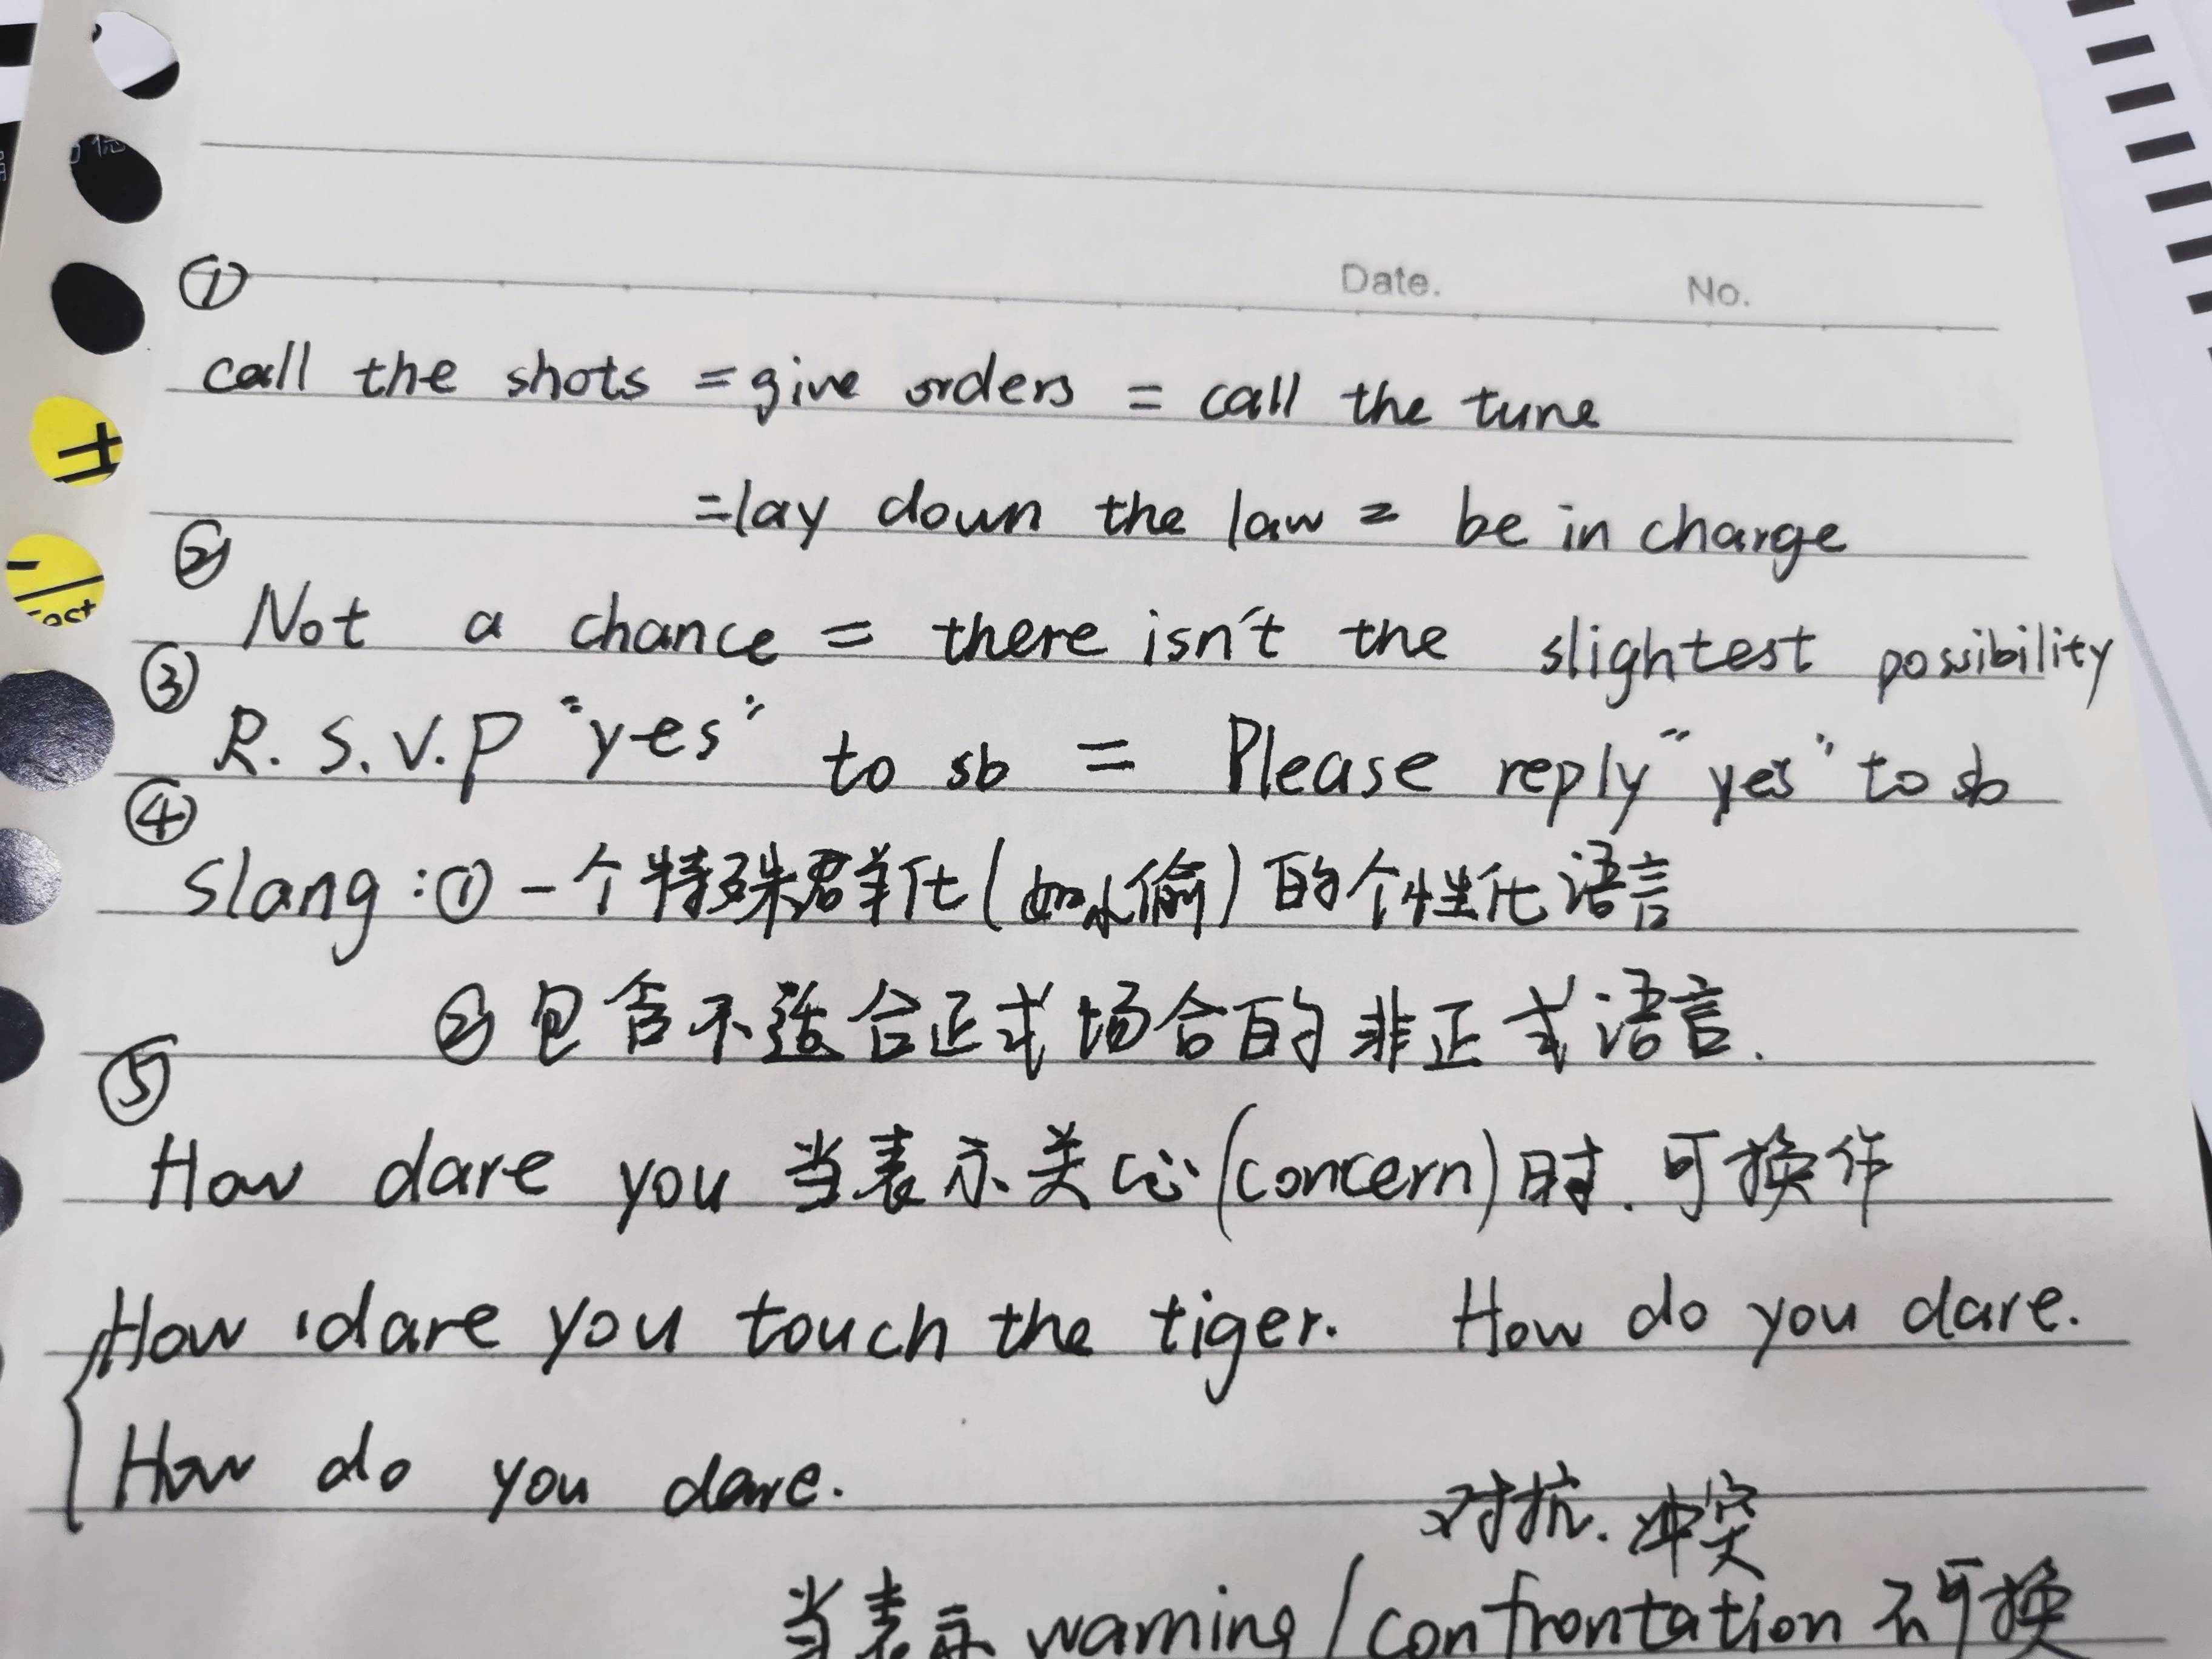 Date. No.
①
call the shots = give orders = call the tune
=lay down the law = be in charge
②
Not a chance = there isn't the slightest possibility
③
R. S. V. P "yes" to sb = Please reply "yes" to sb
④
slang : ① 一个特殊群化(如小偷)的个性化语言
② 包含不适合正式场合的非正式语言.
⑤
How dare you 当表示关心(concern)时. 可换作
How dare you touch the tiger. How do you dare.
How do you dare.
对抗. 冲突
当表示 warning / confrontation 不可换